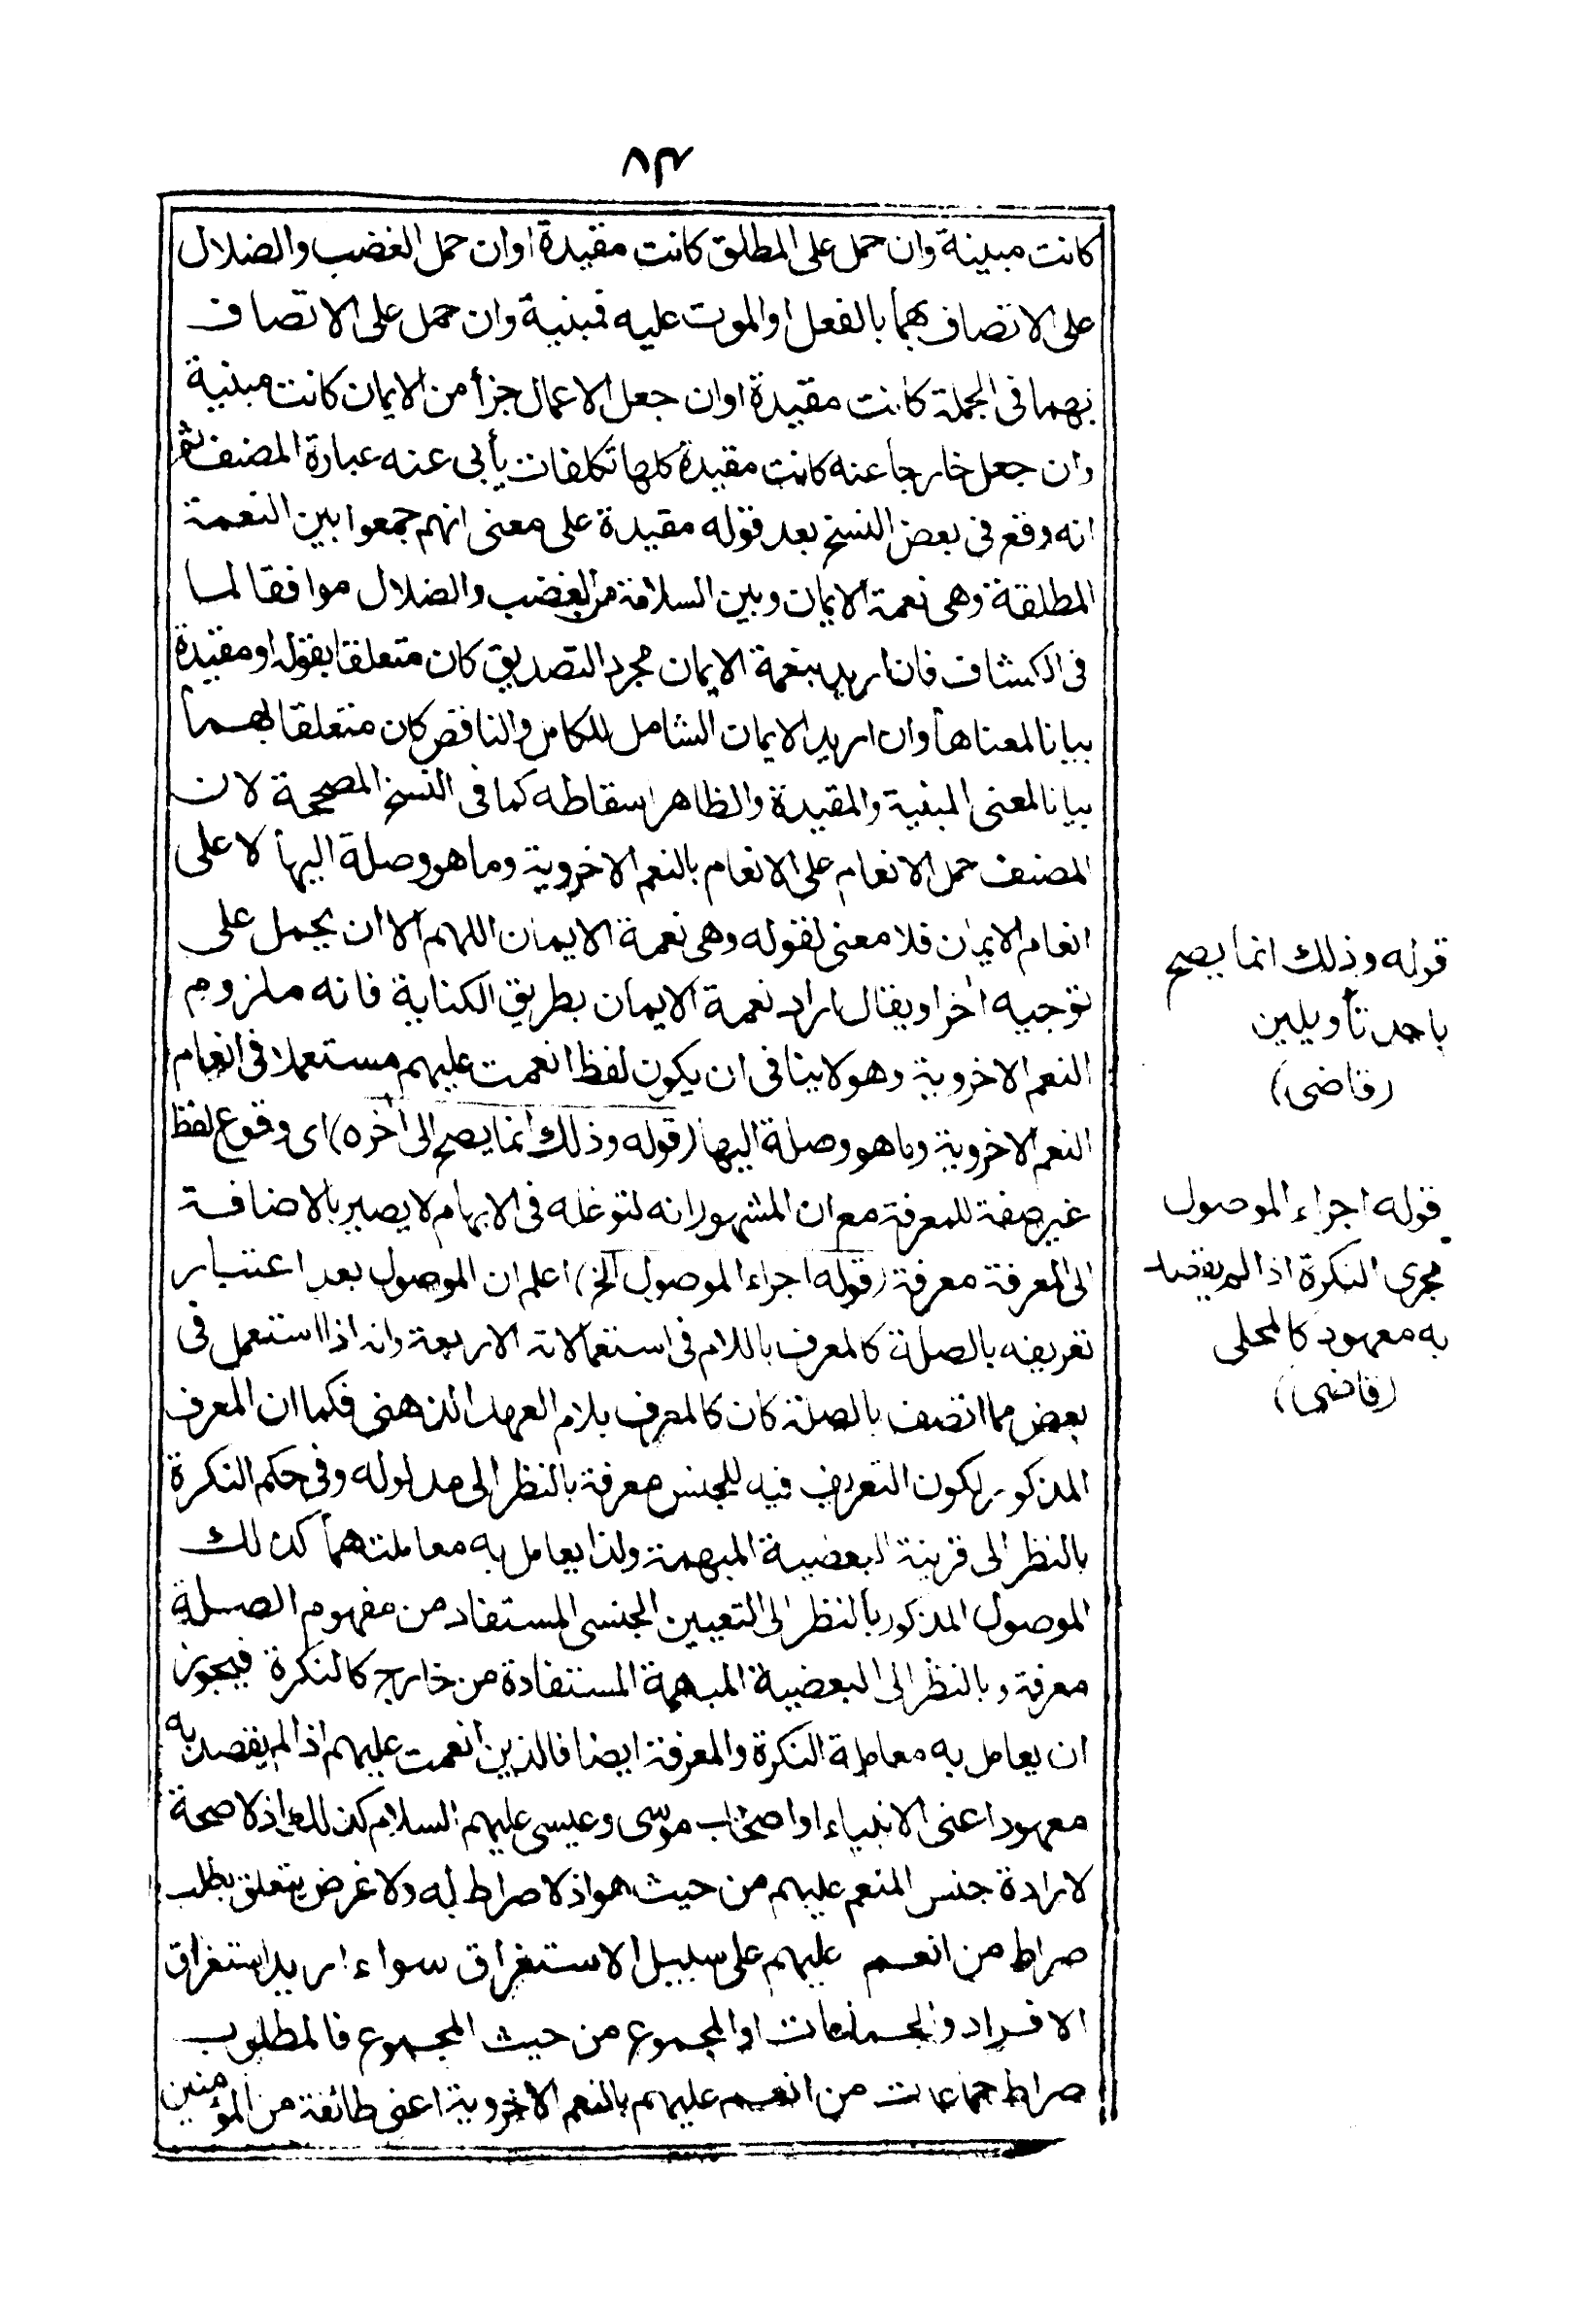 ٨٣
كانت مبينة وان حمل على المطلق كانت مقيدة اوان حمل الغضب والضلال
على الاتصاف بهما بالفعل او الموت عليه فمبنية وان حمل على الاتصاف
بهما فى الجملة كانت مقيدة اوان جعل الاعمال جزأ من الايمان كانت مبنية
وان جعل خارجا عنه كانت مقيدة كلها تكلفات يأبى عنه عبارة المصنف ثم
انه وقع فى بعض النسخ بعد قوله مقيدة على معنى انهم جمعوا بين النعمة
المطلقة وهى نعمة الايمان وبين السلامة من الغضب والضلال موافقا لما
فى الكشاف فان اريد بنعمة الايمان مجرد التصديق كان متعلقا بقوله او مقيدة
بيانا لمعناها وان اريد الايمان الشامل للكامل والناقص كان متعلقا بهما
بيانا لمعنى المبنية والمقيدة والظاهر اسقاطه كما فى النسخ المصححة لان
المصنف حمل الانعام على الانعام بالنعم الاخروية وما هو وصلة اليها لا على
انعام الايمان فلا معنى لقوله وهى نعمة الايمان اللهم الا ان يحمل على
توجيه اخر او يقال اراد نعمة الايمان بطريق الكناية فانه ملزوم
النعم الاخروية وهو لا ينافى ان يكون لفظ انعمت عليهم مستعملا فى انعام
النعم الاخروية وما هو وصلة اليها (قوله وذلك انما يصح الى اخره) اى وقوع لفظ
غير صفة للمعرفة مع ان المشهور انه لتوغله فى الابهام لا يصير بالاضافة
الى المعرفة معرفة (قوله اجراء الموصول الخ) اعلم ان الموصول بعد اعتبار
تعريفه بالصلة كالمعرف باللام فى استعمالاته الاربعة وانه اذا استعمل فى
بعض مما اتصف بالصلة كان كالمعرف بلام العهد الذهنى فكما ان المعرف
المذكور لكون التعريف فيه للجنس معرفة بالنظر الى مدلوله وفى حكم النكرة
بالنظر الى قرينة البعضية المبهمة ولذا يعامل به معاملتهما كذلك
الموصول المذكور بالنظر الى التعيين الجنسى المستفاد من مفهوم الصلة
معرفة وبالنظر الى البعضية المبهمة المستفادة من خارج كالنكرة فيجوز
ان يعامل به معاملة النكرة والمعرفة ايضا فالذين انعمت عليهم اذا لم يقصد به
معهود اعنى الانبياء او اصحاب موسى وعيسى عليهم السلام كذلك اذ لا صحة
لارادة جنس المنعم عليهم من حيث هو اذ لا صراط له ولا غرض يتعلق بطلب
صراط من انعم عليهم على سبيل الاستغراق سواء اريد استغراق
الافراد والجماعات او المجموع من حيث المجموع فالمطلوب
صراط جماعات من انعم عليهم بالنعم الاخروية اعنى طائفة من المؤمنين
قوله وذلك انما يصح
باحد تأويلين
(قاضى)
قوله اجراء الموصول
مجرى النكرة اذا لم يقصد
به معهود كالمحلى
(قاضى)